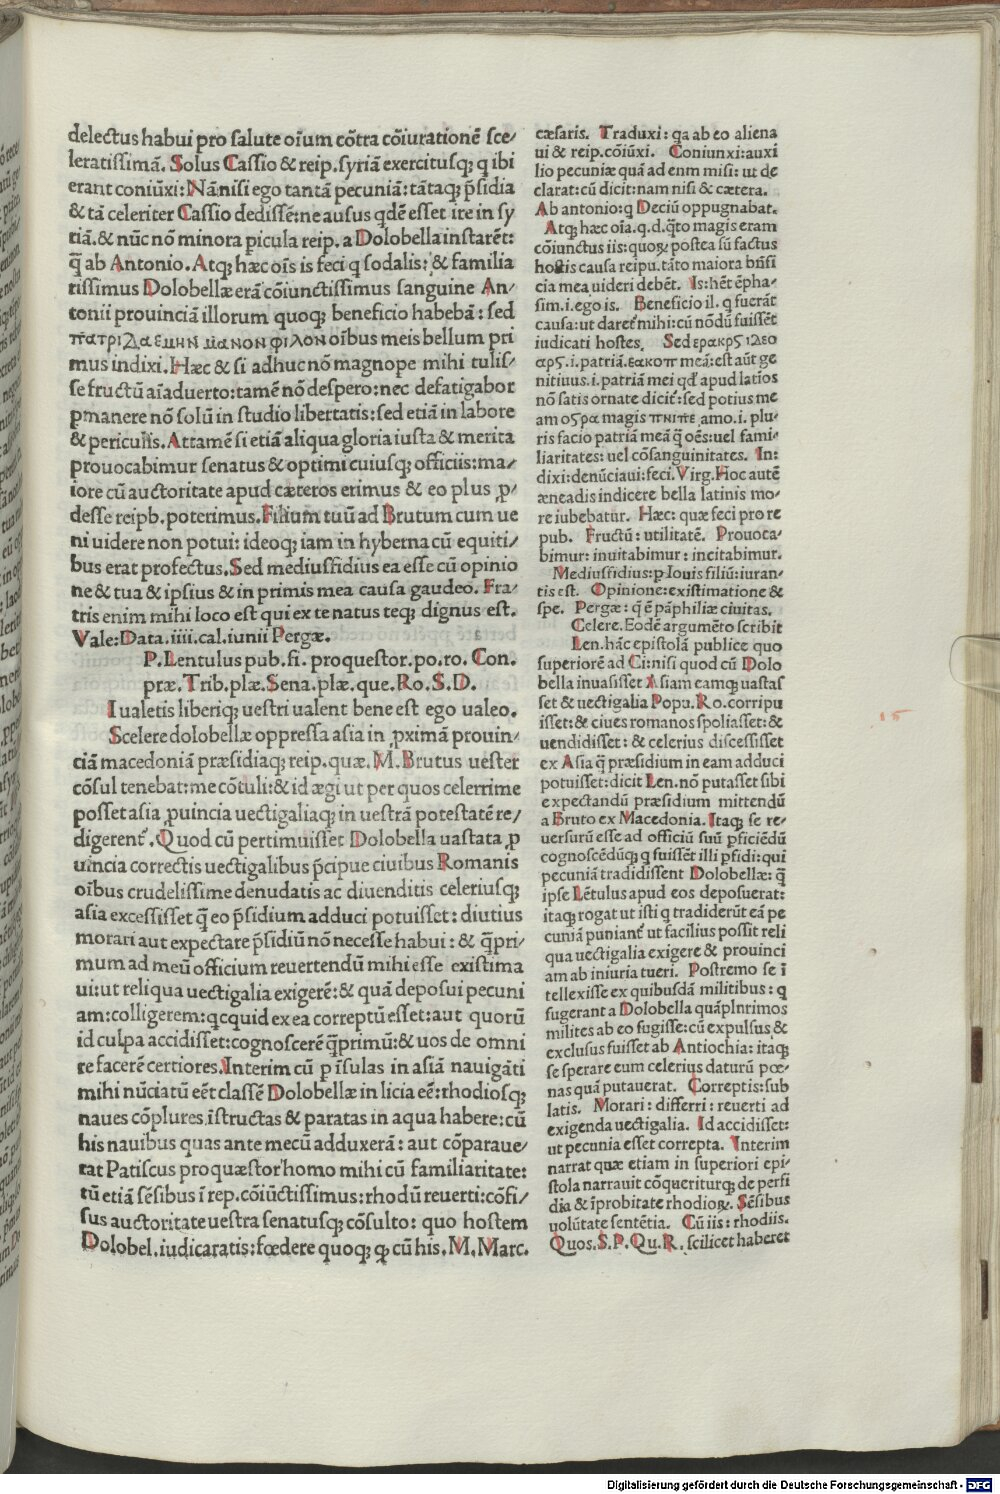 delectus habui pro salute oīum cōtra cōiurationē sce/
leratissimā. Solus Cassio & reip. syriā exercitusq; q ibi
erant coniūxi: Nā nisi ego tantā pecuniā: tātaq; p̄sidia
& tā celeriter Cassio dedissē: ne ausus qdē esset ire in sy
riā. & nūc nō minora picula reip. a Dolobella instarēt:
q̄ ab Antonio. Atq; hæc oīs is feci q sodalis: & familia
rissimus Dolobellæ erā cōiunctissimus sanguine An/
tonii prouinciā illorum quoq; beneficio habebā: sed
πατριδα εμην μανον φιλον oībus meis bellum pri
mus indixi. Hæc & si adhuc nō magnope mihi tulis/
se fructū aīaduerto: tamē nō despero: nec defatigabor
pmanere nō solū in studio libertatis: sed etiā in labore
& periculis. Attamē si etiā aliqua gloria iusta & merita
prouocabimur senatus & optimi cuiusq; officiis: ma/
iore cū auctoritate apud cæteros erimus & eo plus p/
desse reipb. poterimus. Filium tuū ad Brutum cum ue
ni uidere non potui: ideoq; iam in hyberna cū equiti/
bus erat profectus. Sed mediusfidius ea esse cū opinio
ne & tua & ipsius & in primis mea causa gaudeo. Fra/
tris enim mihi loco est qui ex te natus teq; dignus est.
Vale: Data. iiii. cal. iunii Pergæ.
P. Lentulus pub. fi. proquestor. po. ro. Con.
præ. Trib. plæ. Sena. plæ. que. Ro. S. D.
I ualetis liberiq; uestri ualent bene est ego ualeo.
Scelere dolobellæ oppressa asia in pximā prouin/
ciā macedoniā præsidiaq; reip. quæ. M. Brutus uester
cōsul tenebat: me cōtuli: & id ægi ut per quos celerrime
posset asia puincia uectigaliaq; in uestrā potestatē re/
digerent'. Quod cū pertimuisset Dolobella uastata p
uincia correctis uectigalibus p̄cipue ciuibus Romanis
oībus crudelissime denudatis ac diuenditis celeriusq;
asia excessisset q̄ eo p̄sidium adduci potuisset: diutius
morari aut expectare p̄sidiū nō necesse habui: & q̄pri/
mum ad meū officium reuertendū mihi esse existima
ui: ut reliqua uectigalia exigerē: & quā deposui pecuni
am: colligerem: qcquid ex ea correptū esset: aut quorū
id culpa accidisset: cognoscerē q̄primū: & uos de omni
re facerē certiores. Interim cū p īsulas in asiā nauigāti
mihi nūciatū eēt classē Dolobellæ in licia eē: rhodiosq;
naues cōplures īstructas & paratas in aqua habere: cū
his nauibus quas ante mecū adduxerā: aut cōparaue/
rat Patiscus proquæstor homo mihi cū familiaritate:
tū etiā sēsibus ī rep. cōiūctissimus: rhodū reuerti: cōfi/
sus auctoritate uestra senatusq; cōsulto: quo hostem
Dolobel. iudicaratis: fœdere quoq; q cū his. M. Marc.
cæsaris. Traduxi: qa ab eo aliena
ui & reip. cōiūxi. Coniunxi: auxi
lio pecuniæ quā ad enm misi: ut de
clarat: cū dicit: nam nisi & cætera.
Ab antonio: q Deciū oppugnabat.
Atq; hæc oīa. q. d. q̄to magis eram
cōiunctus iis: quoꝝ postea sū factus
hostis causa reipu. tāto maiora bn̄fi
cia mea uideri debēt. Is: hēt ēpha/
sim. i. ego is. Beneficio il. q fuerāt
causa: ut daret' mihi: cū nōdū fuissēt
iudicati hostes. Sed
. i. patriā. meā: est aūt ge
nitiuus. i. patriā mei qd' apud latios
nō satis ornate dicit': sed potius me
am magis amo. i. plu/
ris facio patriā meā q̄ oēs: uel fami/
liaritates: uel cōsanguinitates. In:
dixi: denūciaui: feci. Virg. Hoc autē
æneadis indicere bella latinis mo/
re iubebatur. Hæc: quæ feci pro re
pub. Fructū: utilitatē. Prouoca/
bimur: inuitabimur: incitabimur.
Mediusfidius: p Iouis filiū: iuran/
tis est. Opinione: existimatione &
spe. Pergæ: q ē pāphiliæ ciuitas.
Celere. Eodē argumēto scribit
Len. hāc epistolā publice quo
superiorē ad Ci: nisi quod cū Dolo
bella inuasisset Asiam eamq; uastas
set & uectigalia Popu. Ro. corripu
isset: & ciues romanos spoliasset: &
uendidisset: & celerius discessisset
ex Asia q̄ præsidium in eam adduci
potuisset: dicit Len. nō putasset sibi
expectandū præsidium mittendū
a Bruto ex Macedonia. Itaq; se re/
uersurū esse ad officiū suū pficiēdū
cognoscēdūq; q fuissēt illi pfidi: qui
pecuniā tradidissent Dolobellæ: q̄
ipse Lētulus apud eos deposuerat:
itaq; rogat ut isti q tradiderūt eā pe
cuniā puniant' ut facilius possit reli
qua uectigalia exigere & prouinci
am ab iniuria tueri. Postremo se ī
tellexisse ex quibusdā militibus: q
fugerant a Dolobella quāplnrimos
milites ab eo fugisse: cū expulsus &
exclusus fuisset ab Antiochia: itaq;
se sperare eum celerius daturū pœ/
nas quā putauerat. Correptis: sub
latis. Morari: differri: reuerti ad
exigenda uectigalia. Id accidisset:
ut pecunia esset correpta. Interim
narrat quæ etiam in superiori epi/
stola narrauit cōqueriturq; de perfi
dia & īprobitate rhodioꝝ. Sēsibus
uolūtate sentētia. Cū iis: rhodiis.
Quos. S. P. Qu. R. scilicet haberet
15
Digitalisierung gefördert durch die Deutsche Forschungsgemeinschaft - DFG